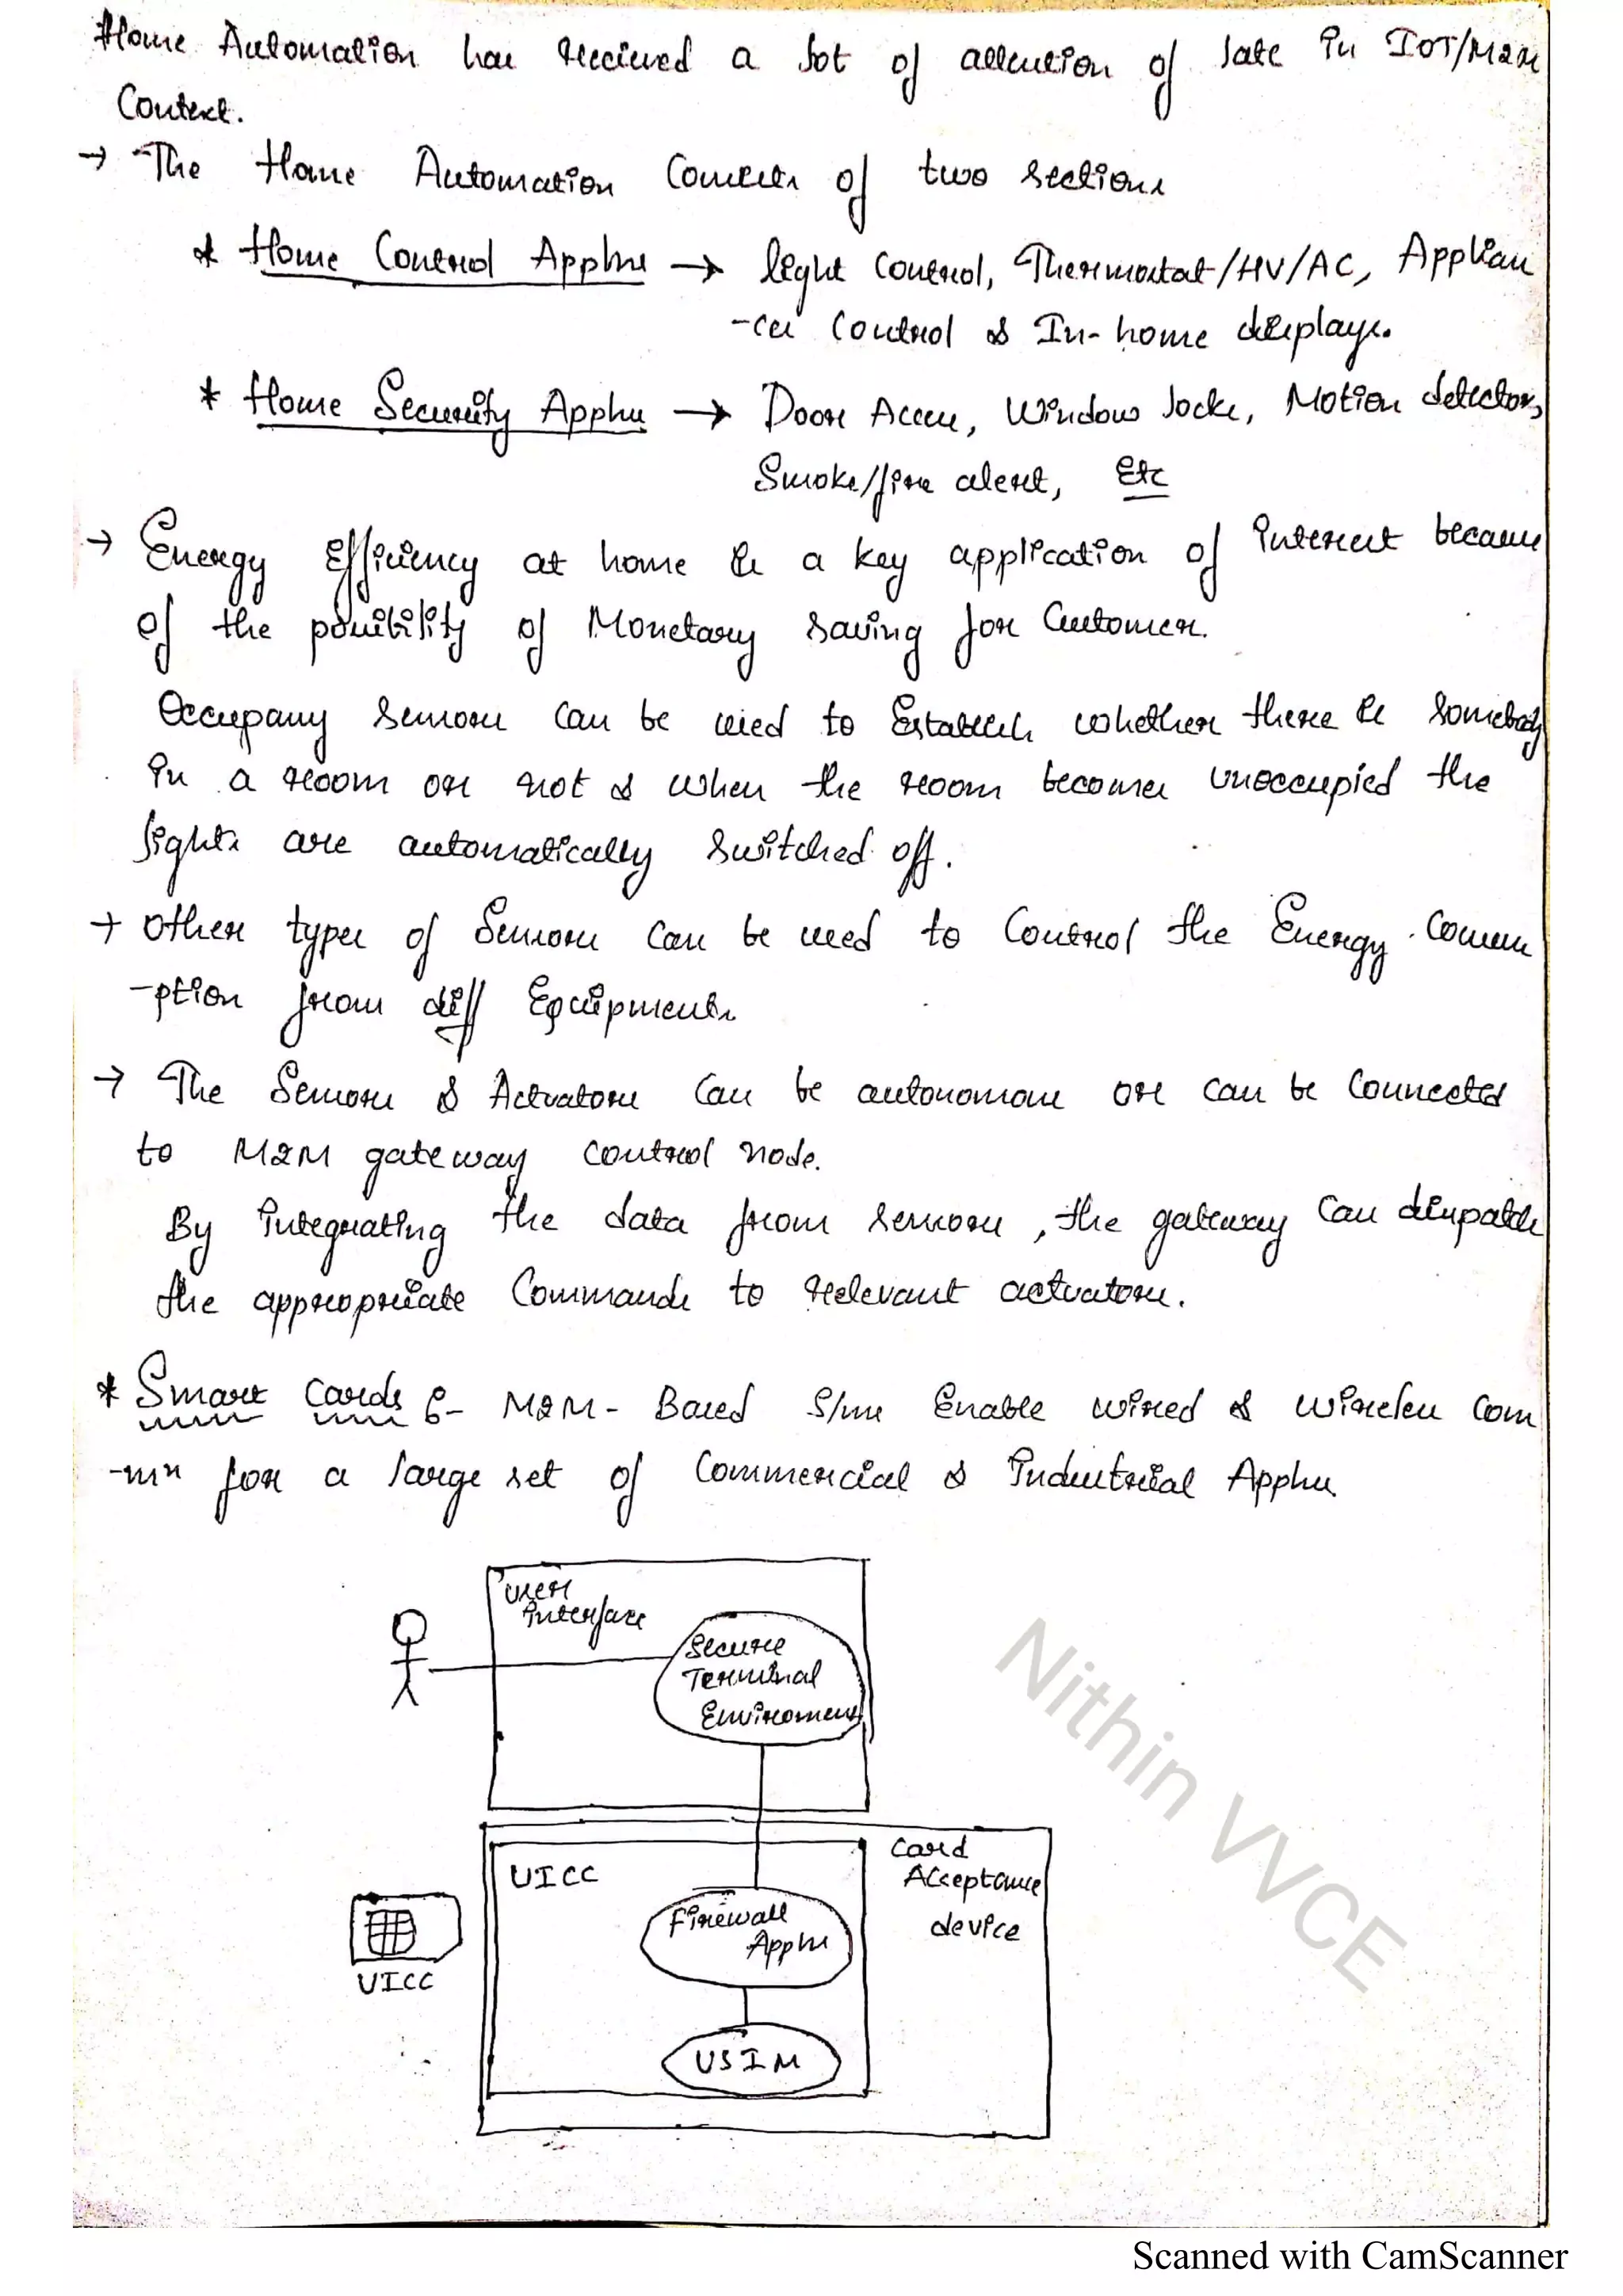 Home Automation has received a lot of attention of late in IOT/M2M
Context.
→ The Home Automation Consists of two sections
* Home Control Applns → light Control, Thermostat/HV/AC, Applian
-ces Control & In-home displays.
* Home Security Applns → Door Access, Window locks, Motion detectors,
Smoke/fire alert, Etc
→ Energy Efficiency at home is a key application of interest because
of the possibility of Monetary saving for Customers.
Occupany sensors can be used to Establish whether there is somebody
in a room or not & when the room becomes unoccupied the
lights are automatically switched off.
→ Other types of Sensors can be used to Control the Energy Consum
-ption from diff Equipments
→ The Sensors & Actuators Can be autonomous or can be Connected
to M2M gateway control node.
By integrating the data from sensors, the gateway Can dispatch
the appropriate Commands to relevant actuators.
* Smart Cards :- M2M - Based S/ms Enable wired & wireless com
-mn for a large set of Commercial & Industrial Applns
User
interface
Secure
Terminal
Enviroment
UICC
Card
Acceptance
device
Firewall
Appln
UICC
USIM
Nithin VVCE
Scanned with CamScanner